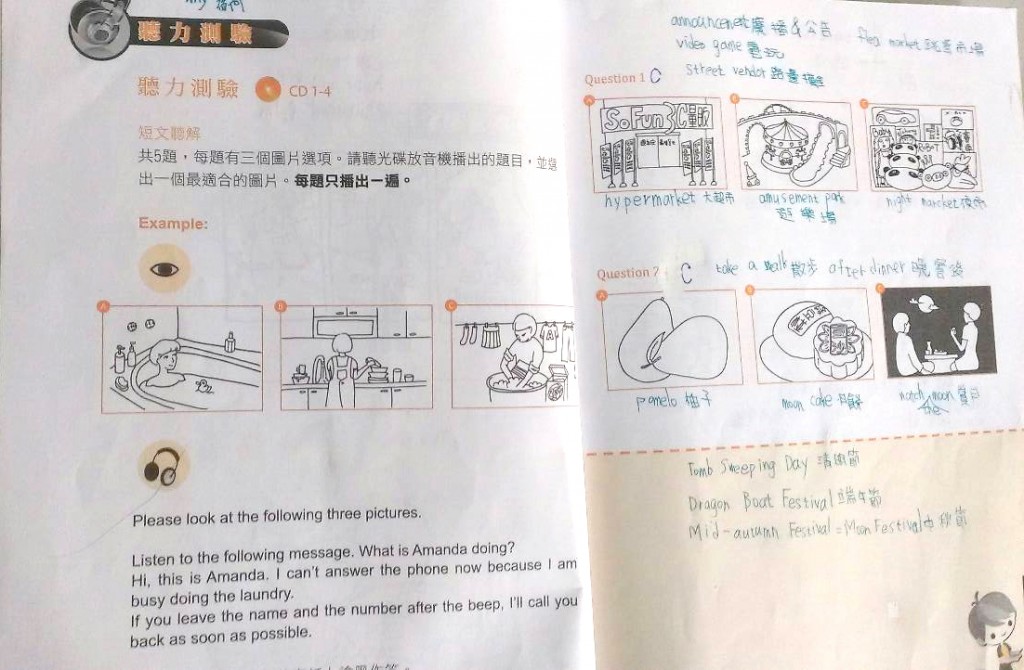 聽力測驗
聽力測驗 CD 1-4
短文聽解
共5題，每題有三個圖片選項。請聽光碟放音機播出的題目，並
出一個最適合的圖片。每題只播出一遍。
Example:
A
B
C
Please look at the following three pictures.
Listen to the following message. What is Amanda doing?
Hi, this is Amanda. I can't answer the phone now because I am
busy doing the laundry.
If you leave the name and the number after the beep, I'll call you
back as soon as possible.
廣播&公告
video game 電玩
street vendor
Question 1 C
A
B
C
SoFun 3C量販
hypermarket 大超市
amusement park
遊樂場
night
Question 2 C take a walk 散步 after dinner 晚餐後
A
B
C
pomelo 柚子
moon cake 月餅
moon 賞月
the
Tomb Sweeping Day 清明節
Dragon Boat Festival 端午節
Mid-autumn Festival = Moon Festival 中秋節